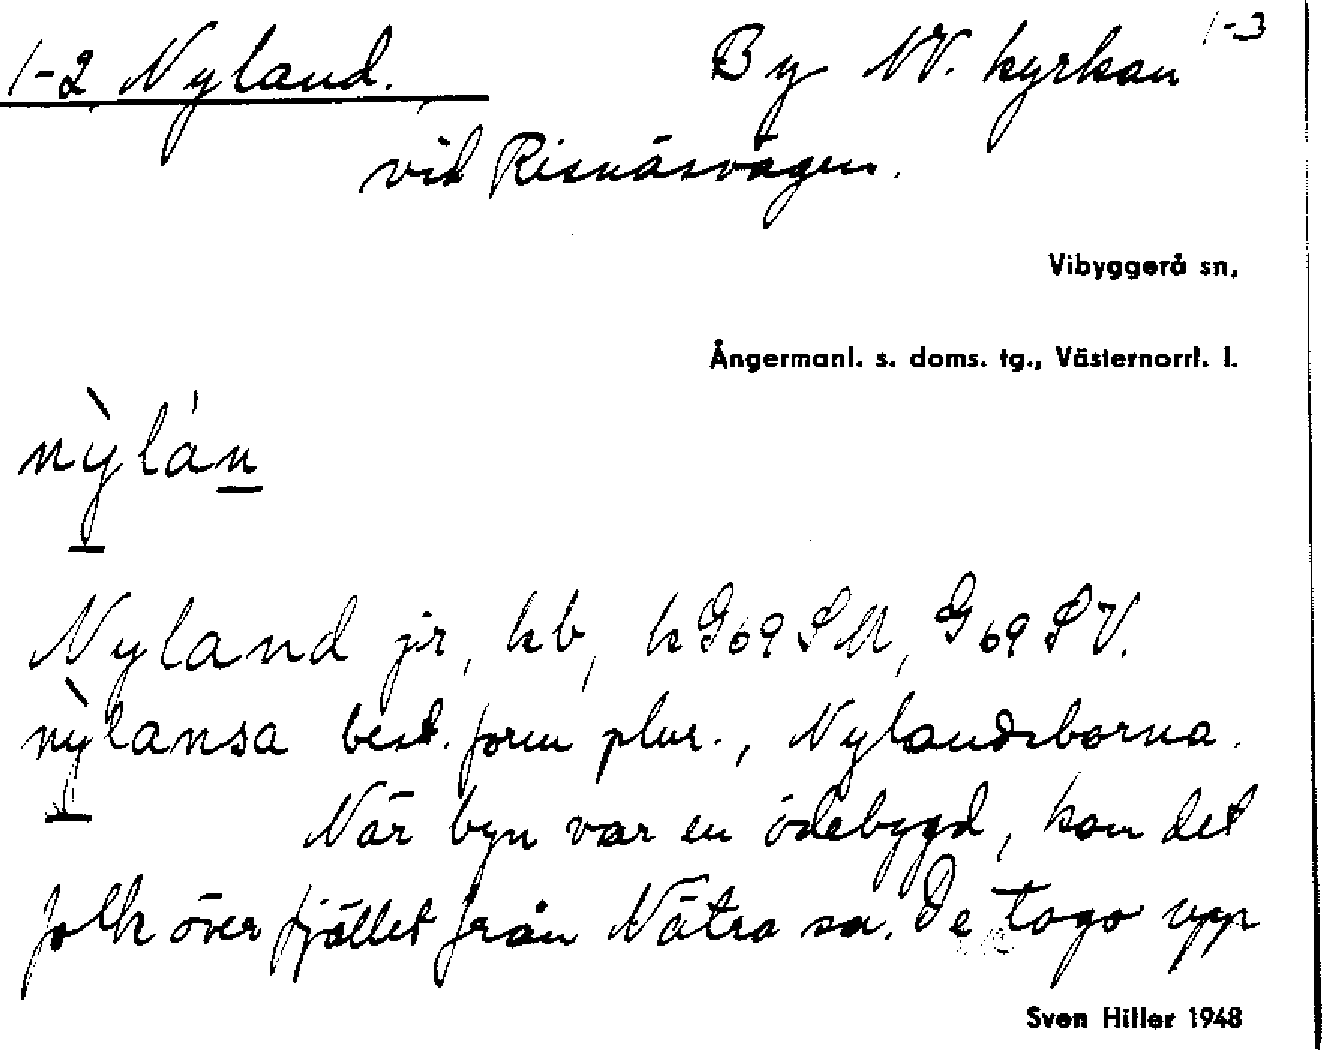 1-3
1-2 Nyland. By NV. kyrkan
vid Risnäsvägen.
Vibyggerå sn,
Ångermanl. s. doms. tg., Västernorrl. l.
nỳlán
Nyland jr, kb, kG69SM, G69SV.
nỳlansa best. form plur., Nylandsborna.
När byn var en ödebygd, kom det
folk över fjället från Nätra sn. De togo upp
Sven Hiller 1948